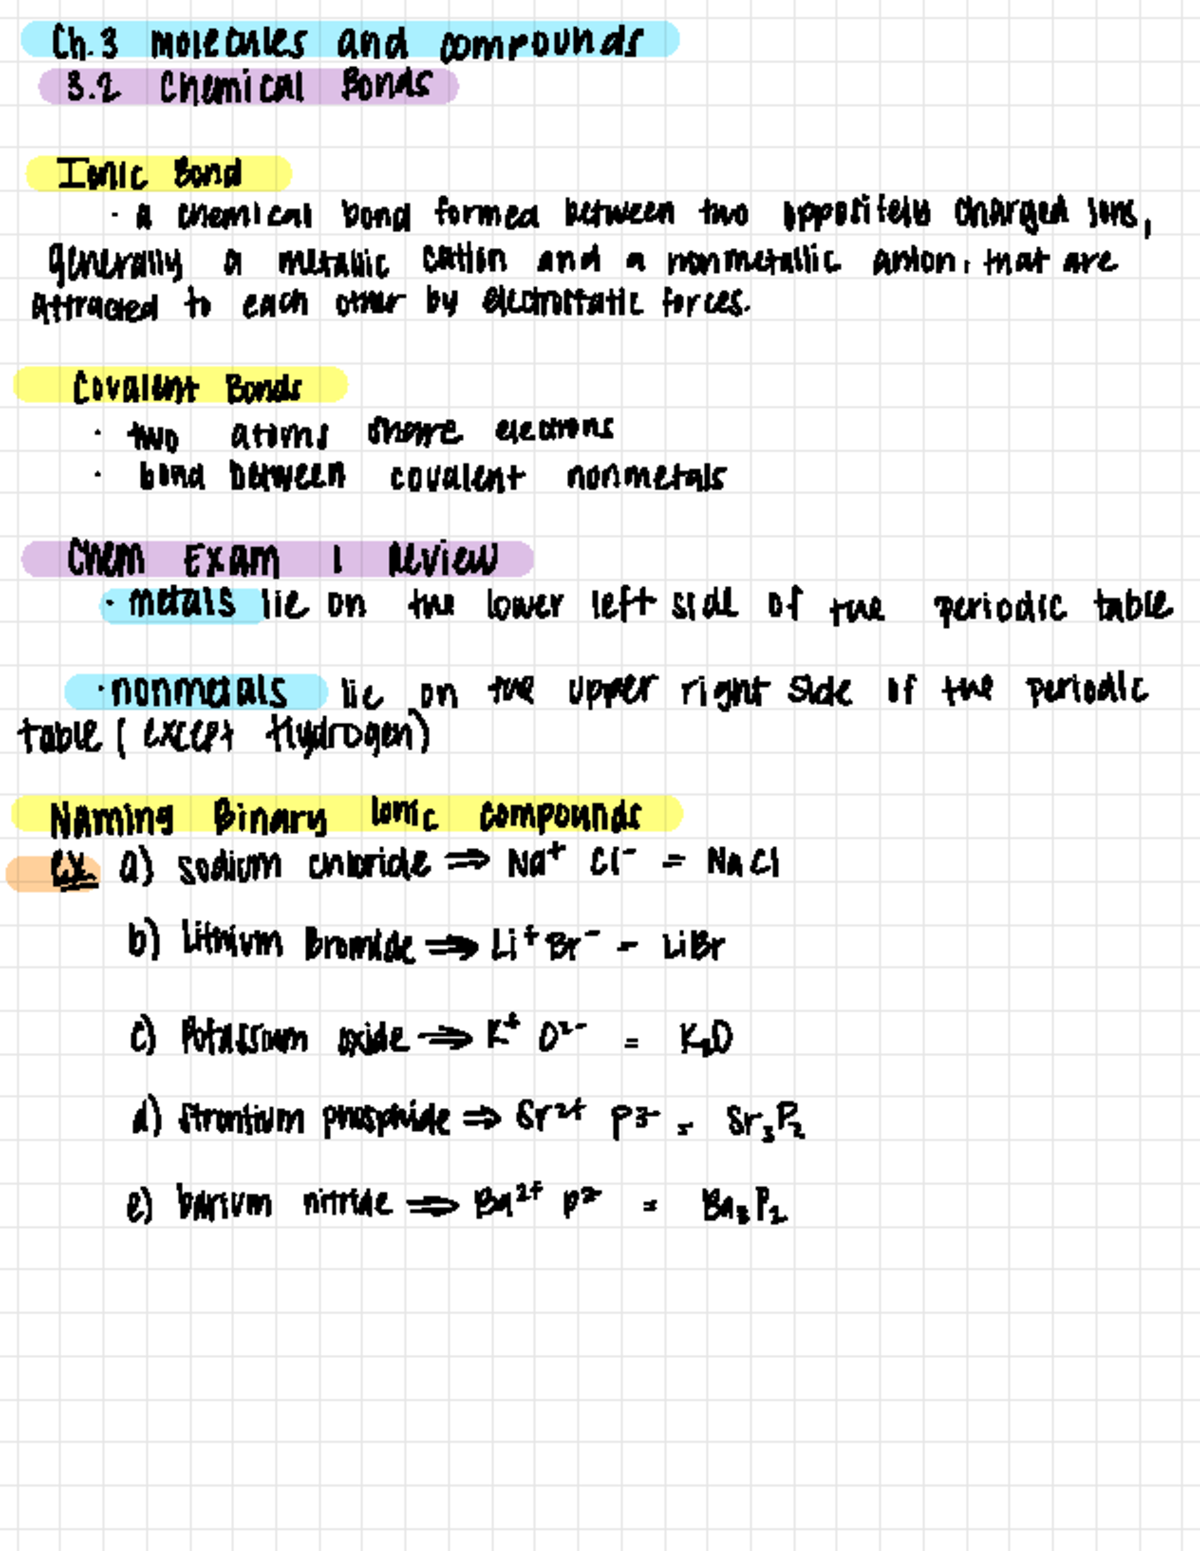 Ch.3 molecules and compounds
3.2 Chemical Bonds
Ionic Bond
· a chemical bond formed between two oppositely charged ions,
generally a metallic cation and a nonmetallic anion, that are
attracted to each other by electrostatic forces.
Covalent Bonds
· two atoms share electrons
· bond between covalent nonmetals
Chem Exam 1 Review
· metals lie on the lower left side of the periodic table
· nonmetals lie on the upper right side of the periodic
table (except Hydrogen)
Naming Binary Ionic compounds
Ex a) sodium chloride ⇒ Na⁺ Cl⁻ = NaCl
b) Lithium Bromide ⇒ Li⁺ Br⁻ - LiBr
c) Potassium oxide ⇒ K⁺ O²⁻ = K₂O
d) strontium phosphide ⇒ Sr²⁺ P³⁻ = Sr₃P₂
e) barium nitride ⇒ Ba²⁺ = Ba₃P₂